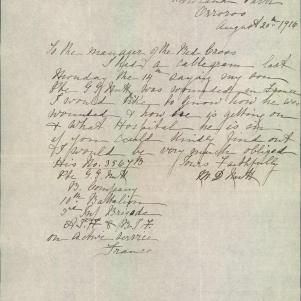 Orroroo
August 20th 1916
To the manager of the Red Cross
I had a cablegram last
Monday the 14th saying my son
Pte G G was wounded in France
I would like to know how he was
wounded & how he is getting on
& What Hospital he is in
if you could kindly find out
& I would be very much obliged
His No. 3567 B Yours Faithfully
Pte G G
B. Company
10th Battalion
3rd Inf Brigade
A.I.F. & B.E.F.
on Active Service
France